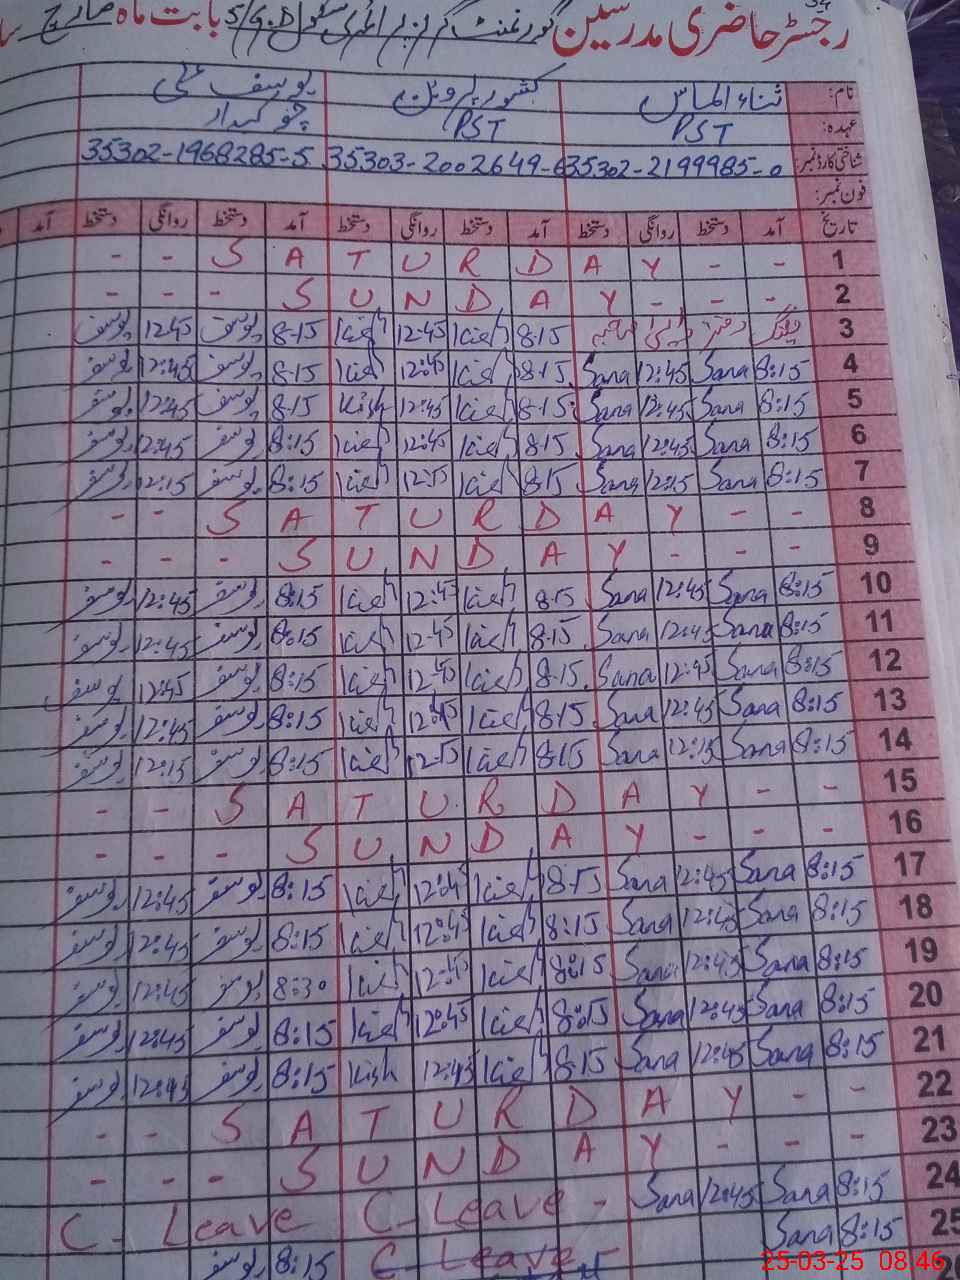 رجسٹر حاضری مدرسین گورنمنٹ گرلز پرائمری سکول 5/G.D بابت ماہ مارچ
نام: ثناء الماس کشور پروین یوسف علی
عہدہ: PST PST چوکیدار
شناختی کارڈ نمبر: 35302-2199985-0 35303-2002649-6 35302-1968285-5
فون نمبر:
تاریخ آمد دستخط روانگی دستخط آمد دستخط روانگی دستخط آمد دستخط روانگی دستخط آمد
1 - - S A T U R D A Y - -
2 - - - S U N D A Y - - -
3 دفتر 8-15 Kish 12:45 Kish 8-15 یوسف 12:45 یوسف
4 8:15 Sana 12:45 Sana 8-15 Kish 12:45 Kish 8-15 یوسف 12:45 یوسف
5 8:15 Sana 12:45 Sana 8-15 Kish 12:45 Kish 8-15 یوسف 12:45 یوسف
6 8:15 Sana 12:45 Sana 8-15 Kish 12:45 Kish 8:15 یوسف 12:45 یوسف
7 8:15 Sana 12:15 Sana 8-15 Kish 12-15 Kish 8:15 یوسف 12:15 یوسف
8 - - S A T U R D A Y - -
9 - - - S U N D A Y - - -
10 8:15 Sana 12:45 Sana 8-15 Kish 12:45 Kish 8:15 یوسف 12:45 یوسف
11 8:15 Sana 12:45 Sana 8-15 Kish 12-45 Kish 8:15 یوسف 12:45 یوسف
12 8:15 Sana 12:45 Sana 8-15 Kish 12-45 Kish 8:15 یوسف 12:45 یوسف
13 8:15 Sana 12:45 Sana 8-15 Kish 12:45 Kish 8:15 یوسف 12:45 یوسف
14 8:15 Sana 12:15 Sana 8-15 Kish 12-15 Kish 8:15 یوسف 12:15 یوسف
15 - - S A T U R D A Y - -
16 - - - S U N D A Y - - -
17 8:15 Sana 12:45 Sana 8-15 Kish 12:45 Kish 8:15 یوسف 12:45 یوسف
18 8:15 Sana 12:45 Sana 8:15 Kish 12:45 Kish 8:15 یوسف 12:45 یوسف
19 8:15 Sana 12:45 Sana 8:15 Kish 12:45 Kish 8:30 یوسف 12:45 یوسف
20 8:15 Sana 12:45 Sana 8:15 Kish 12:45 Kish 8:15 یوسف 12:45 یوسف
21 8:15 Sana 12:45 Sana 8-15 Kish 12:45 Kish 8:15 یوسف 12:45 یوسف
22 - - S A T U R D A Y - -
23 - - - S U N D A Y - - -
24 8:15 Sana 12:45 Sana C-Leave - C-Leave
25 8:15 Sana C-Leave 8:15 یوسف
25-03-25 08:46